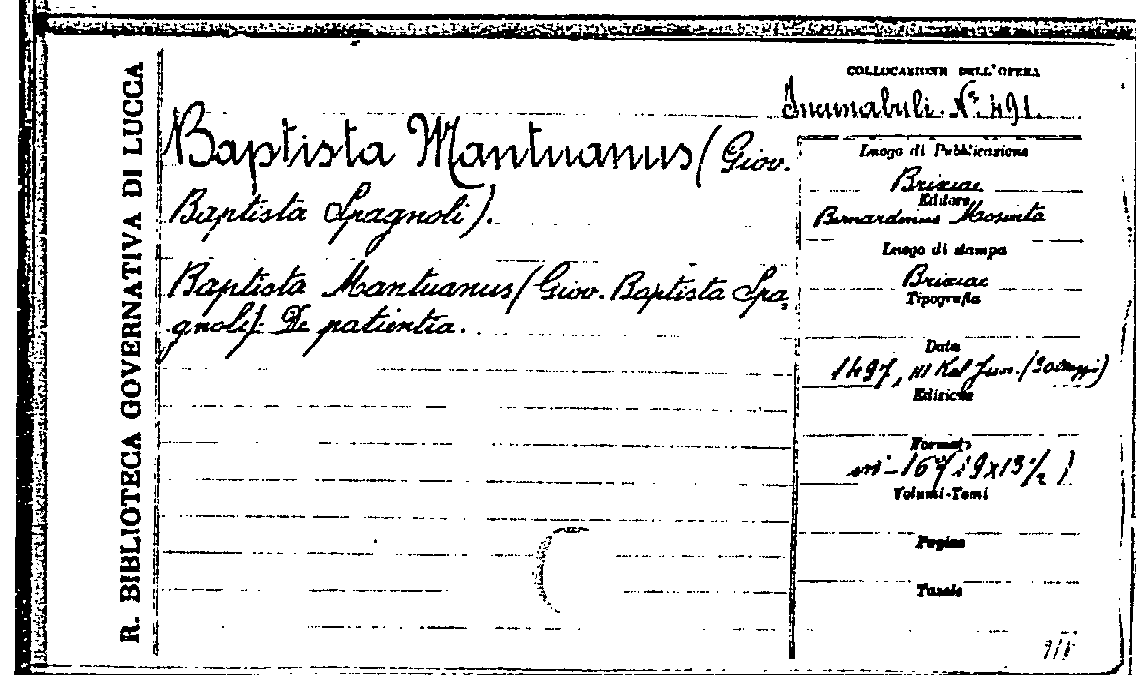 R. BIBLIOTECA GOVERNATIVA DI LUCCA
COLLOCAZIONE DELL'OPERA
Incunabuli. N.º 491.
Baptista Mantuanus (Giov.
Baptista Spagnoli).
Baptista Mantuanus (Giov. Baptista Spa,
gnoli). De patientia.
Luogo di Pubblicazione
Brixiae
Editore
Bernardinus Misinta
Luogo di stampa
Brixiae
Tipografia
Data
1497, III Kal Jun. (30 Maggio)
Edizione
Formato
in-16º (19x13½)
Volumi-Tomi
Pagine
Tavole